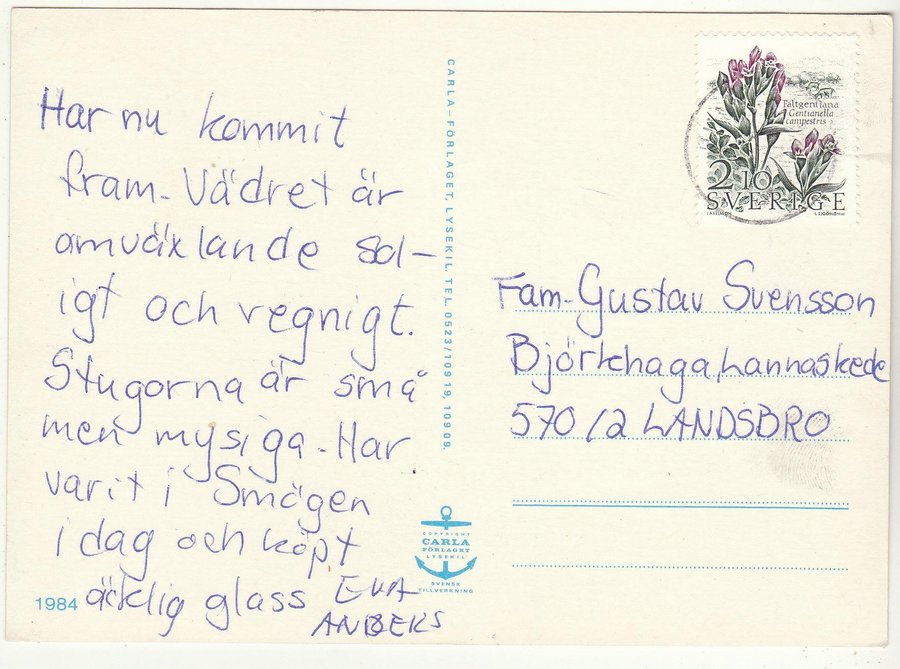 Har nu kommit
fram. Vädret är
omväxlande sol-
igt och regnigt.
Stugorna är små
men mysiga. Har
varit i Smögen
i dag och köpt
äcklig glass EVA
ANDERS
1984
CARLA-FÖRLAGET, LYSEKIL. TEL. 0523/109 19, 109 09.
COPYRIGHT
CARLA
FÖRLAGET
LYSEKIL
SVENSK
TILLVERKNING
Fältgentiana
Gentianella
campestris
2.10
SVERIGE
Fam. Gustav Svensson
Björkhaga, Lannaskede
570 12 LANDSBRO